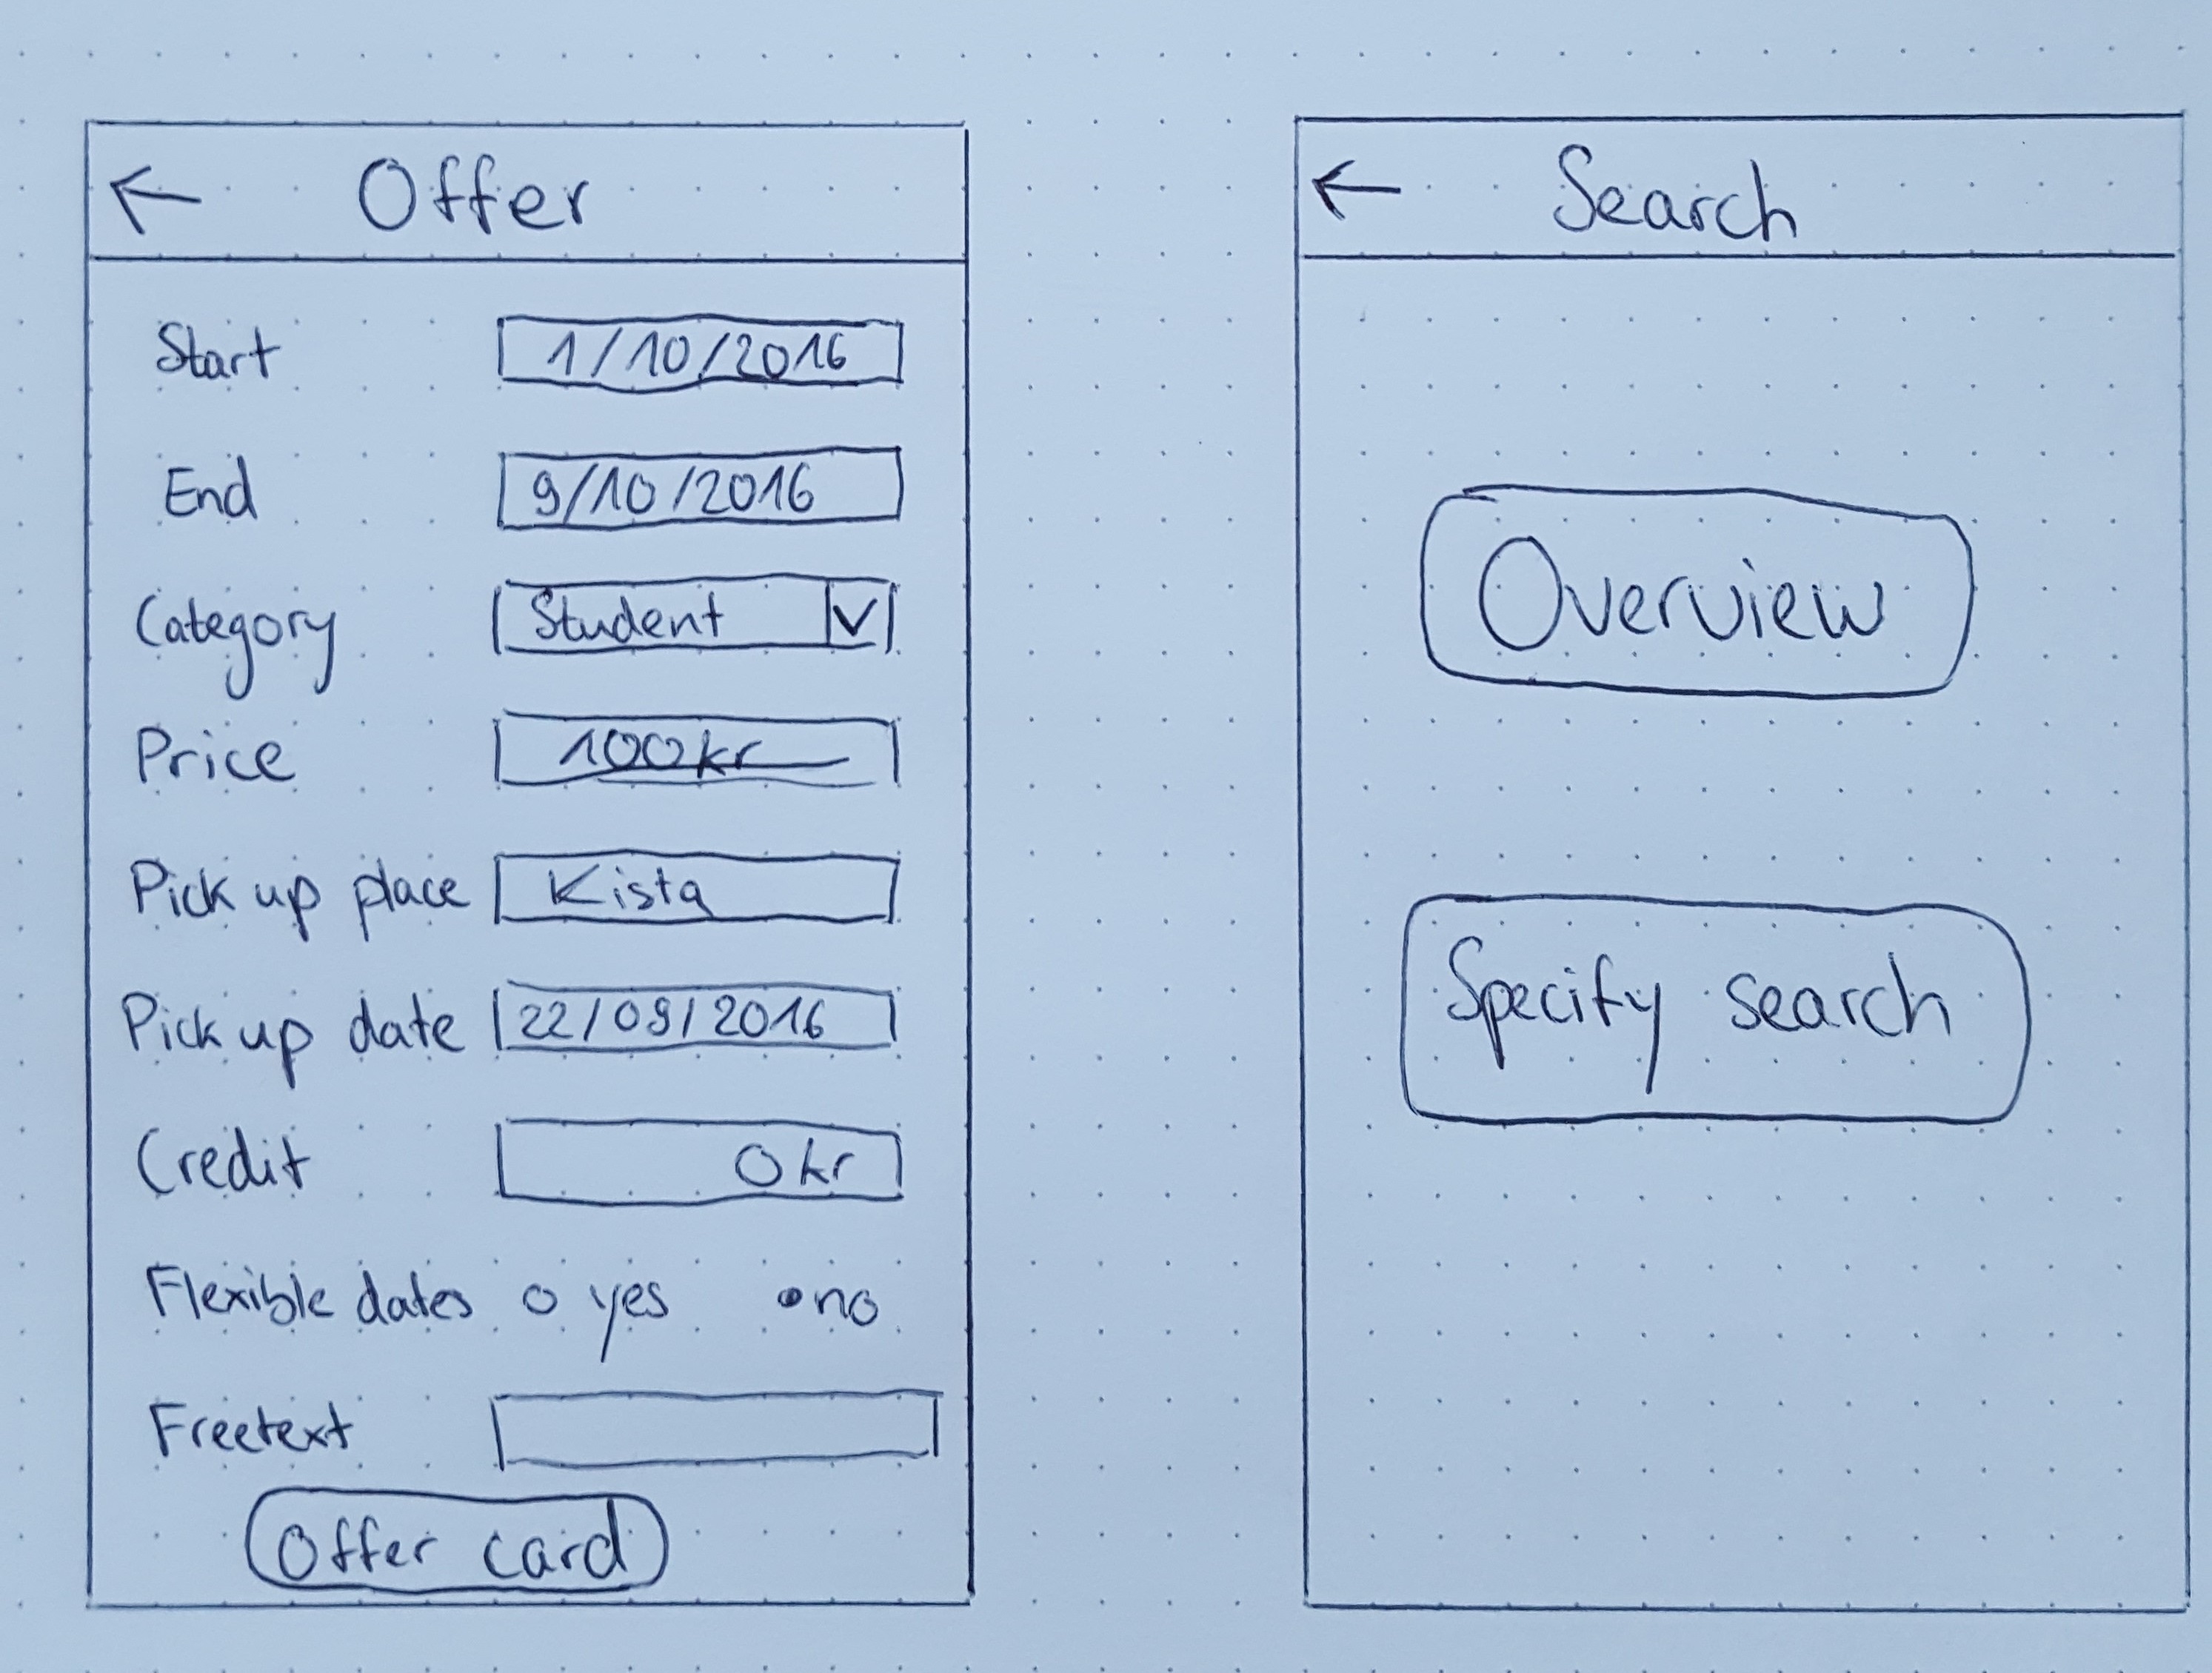 ← Offer
Start 1/10/2016
End 9/10/2016
Category Student
Price 100kr
Pick up place Kista
Pick up date 22/09/2016
Credit 0 kr
Flexible dates yes no
Freetext
Offer card
← Search
Overview
Specify search